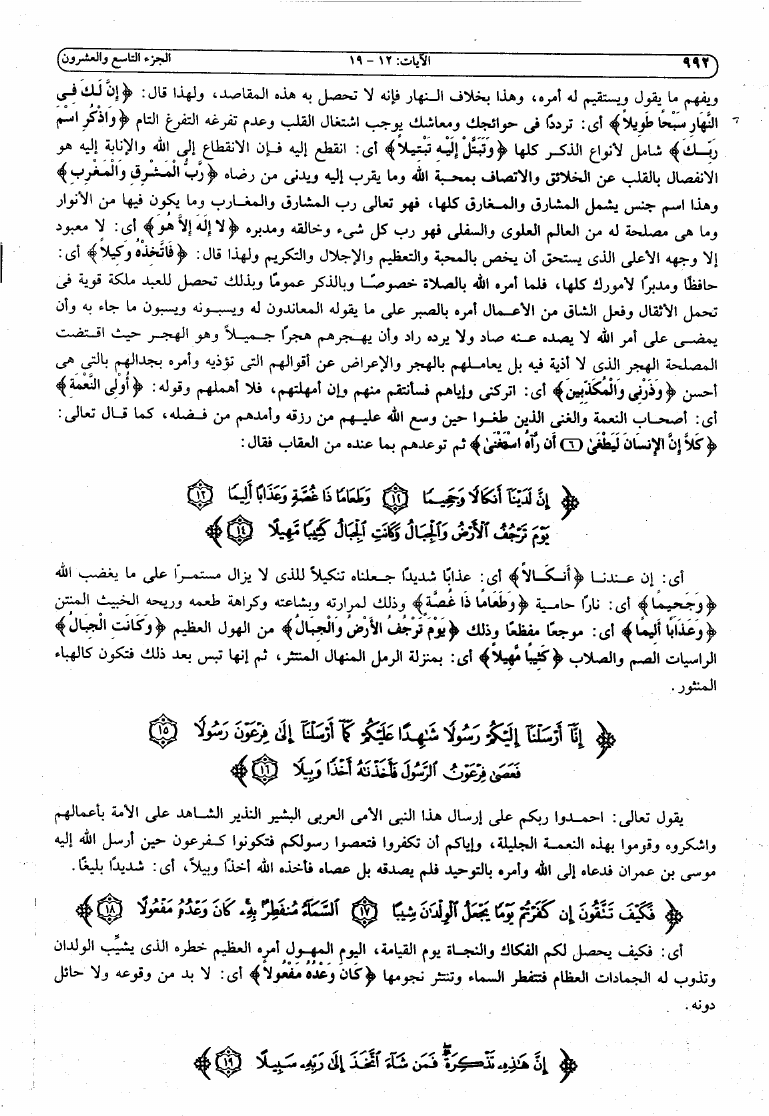 ٩٩٢ الآيات: ١٢ - ١٩ الجزء التاسع والعشرون
ويفهم ما يقول ويستقيم له أمره، وهذا بخلاف النهار فإنه لا تحصل به هذه المقاصد، ولهذا قال: ﴿إِنَّ لَكَ فِي
النَّهَارِ سَبْحًا طَوِيلاً﴾ أى: ترددًا فى حوائجك ومعاشك يوجب اشتغال القلب وعدم تفرغه التفرغ التام ﴿وَاذْكُرِ اسْمَ
رَبِّكَ﴾ شامل لأنواع الذكر كلها ﴿وَتَبَتَّلْ إِلَيْهِ تَبْتِيلاً﴾ أى: انقطع إليه فإن الانقطاع إلى الله والإنابة إليه هو
الانفصال بالقلب عن الخلائق والاتصاف بمحبة الله وما يقرب إليه ويدنى من رضاه ﴿رَّبُّ الْمَشْرِقِ وَالْمَغْرِبِ﴾
وهذا اسم جنس يشمل المشارق والمغارق كلها، فهو تعالى رب المشارق والمغارب وما يكون فيها من الأنوار
وما هى مصلحة له من العالم العلوى والسفلى فهو رب كل شىء وخالقه ومدبره ﴿لا إِلَهَ إِلاَّ هُوَ﴾ أى: لا معبود
إلا وجهه الأعلى الذى يستحق أن يخص بالمحبة والتعظيم والإجلال والتكريم ولهذا قال: ﴿فَاتَّخِذْهُ وَكِيلاً﴾ أى:
حافظًا ومدبرًا لأمورك كلها، فلما أمره الله بالصلاة خصوصًا وبالذكر عمومًا وبذلك تحصل للعبد ملكة قوية فى
تحمل الأثقال وفعل الشاق من الأعمال أمره بالصبر على ما يقوله المعاندون له ويسبونه ويسبون ما جاء به وأن
يمضى على أمر الله لا يصده عنه صاد ولا يرده راد وأن يهجرهم هجرًا جميلاً وهو الهجر حيث اقتضت
المصلحة الهجر الذى لا أذية فيه بل يعاملهم بالهجر والإعراض عن أقوالهم التى تؤذيه وأمره بجدالهم بالتى هى
أحسن ﴿وَذَرْنِي وَالْمُكَذِّبِينَ﴾ أى: اتركنى وإياهم فسأنتقم منهم وإن أمهلتهم، فلا أهملهم وقوله: ﴿أُوْلِي النَّعْمَةِ﴾
أى: أصحاب النعمة والغنى الذين طغوا حين وسع الله عليهم من رزقه وأمدهم من فضله، كما قال تعالى:
﴿كَلاَّ إِنَّ الإِنسَانَ لَيَطْغَىٰ ٦ أَن رَّآهُ اسْتَغْنَىٰ﴾ ثم توعدهم بما عنده من العقاب فقال:
﴿إِنَّ لَدَيْنَآ أَنكَالًا وَجَحِيمًا ١٢ وَطَعَامًا ذَا غُصَّةٍ وَعَذَابًا أَلِيمًا ١٣
يَوْمَ تَرْجُفُ ٱلْأَرْضُ وَٱلْجِبَالُ وَكَانَتِ ٱلْجِبَالُ كَثِيبًا مَّهِيلًا ١٤﴾
أى: إن عندنا ﴿أَنكَالاً﴾ أى: عذابًا شديدًا جعلناه تنكيلاً للذى لا يزال مستمرًا على ما يغضب الله
﴿وَجَحِيمًا﴾ أى: نارًا حامية ﴿وَطَعَامًا ذَا غُصَّةٍ﴾ وذلك لمرارته وبشاعته وكراهة طعمه وريحه الخبيث المنتن
﴿وَعَذَابًا أَلِيمًا﴾ أى: موجعًا مفظعًا وذلك ﴿يَوْمَ تَرْجُفُ الأَرْضُ وَالْجِبَالُ﴾ من الهول العظيم ﴿وَكَانَتِ الْجِبَالُ﴾
الراسيات الصم والصلاب ﴿كَثِيبًا مَّهِيلاً﴾ أى: بمنزلة الرمل المنهال المنتثر، ثم إنها تبس بعد ذلك فتكون كالهباء
المنثور.
﴿إِنَّآ أَرْسَلْنَآ إِلَيْكُمْ رَسُولًا شَٰهِدًا عَلَيْكُمْ كَمَآ أَرْسَلْنَآ إِلَىٰ فِرْعَوْنَ رَسُولًا ١٥
فَعَصَىٰ فِرْعَوْنُ ٱلرَّسُولَ فَأَخَذْنَٰهُ أَخْذًا وَبِيلًا ١٦﴾
يقول تعالى: احمدوا ربكم على إرسال هذا النبى الأمى العربى البشير النذير الشاهد على الأمة بأعمالهم
واشكروه وقوموا بهذه النعمة الجليلة، وإياكم أن تكفروا فتعصوا رسولكم فتكونوا كفرعون حين أرسل الله إليه
موسى بن عمران فدعاه إلى الله وأمره بالتوحيد فلم يصدقه بل عصاه فأخذه الله أخذًا وبيلاً، أى: شديدًا بليغًا.
﴿فَكَيْفَ تَتَّقُونَ إِن كَفَرْتُمْ يَوْمًا يَجْعَلُ ٱلْوِلْدَٰنَ شِيبًا ١٧ ٱلسَّمَآءُ مُنفَطِرٌۢ بِهِۦ كَانَ وَعْدُهُۥ مَفْعُولًا ١٨﴾
أى: فكيف يحصل لكم الفكاك والنجاة يوم القيامة، اليوم المهول أمره العظيم خطره الذى يشيِّب الولدان
وتذوب له الجمادات العظام فتتفطر السماء وتنتثر نجومها ﴿كَانَ وَعْدُهُ مَفْعُولاً﴾ أى: لا بد من وقوعه ولا حائل
دونه.
﴿إِنَّ هَٰذِهِۦ تَذْكِرَةٌ فَمَن شَآءَ ٱتَّخَذَ إِلَىٰ رَبِّهِۦ سَبِيلًا ١٩﴾